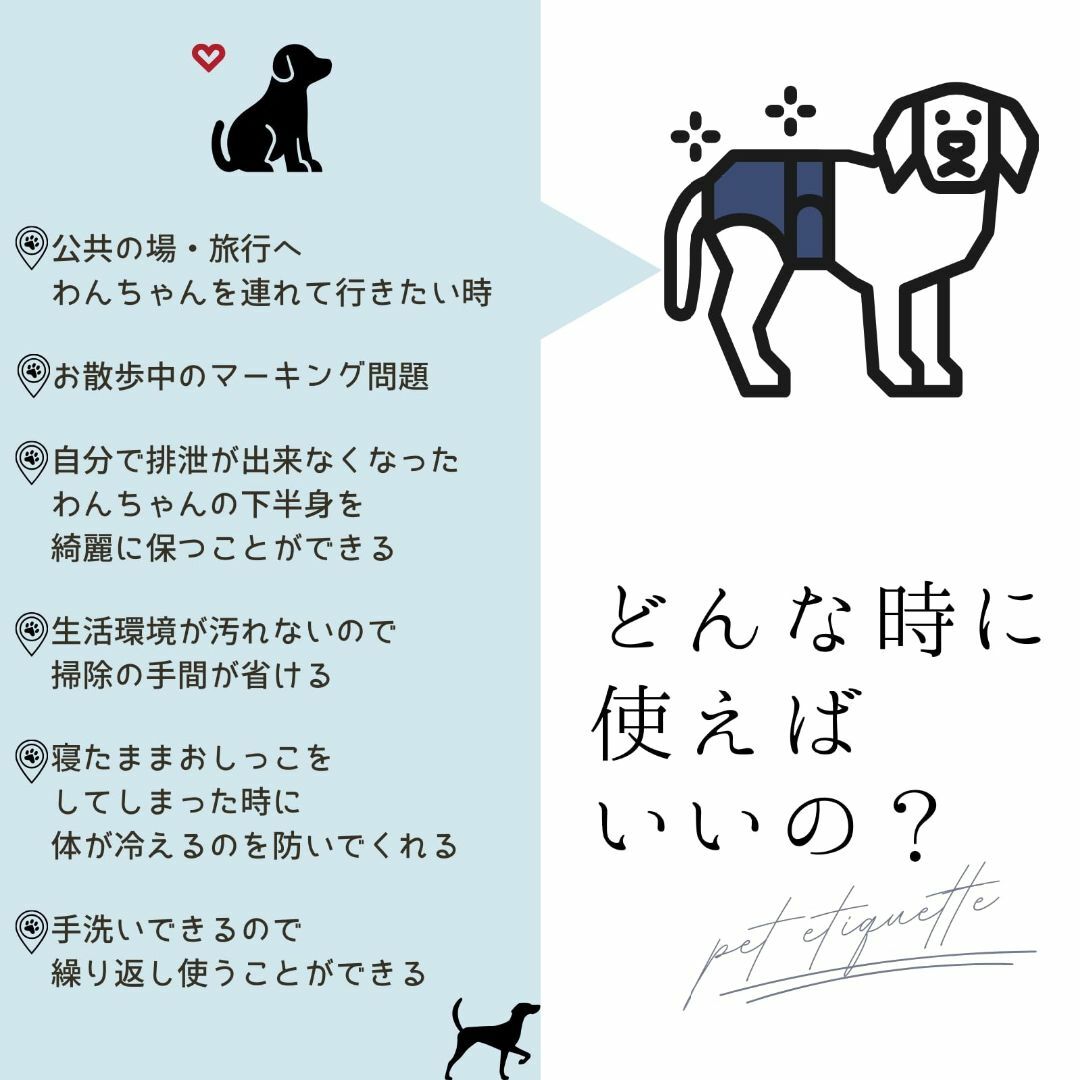 公共の場・旅行へ
わんちゃんを連れて行きたい時
お散歩中のマーキング問題
自分で排泄が出来なくなった
わんちゃんの下半身を
綺麗に保つことができる
生活環境が汚れないので
掃除の手間が省ける
寝たままおしっこを
してしまった時に
体が冷えるのを防いでくれる
手洗いできるので
繰り返し使うことができる
どんな時に
使えば
いいの？
pet etiquette